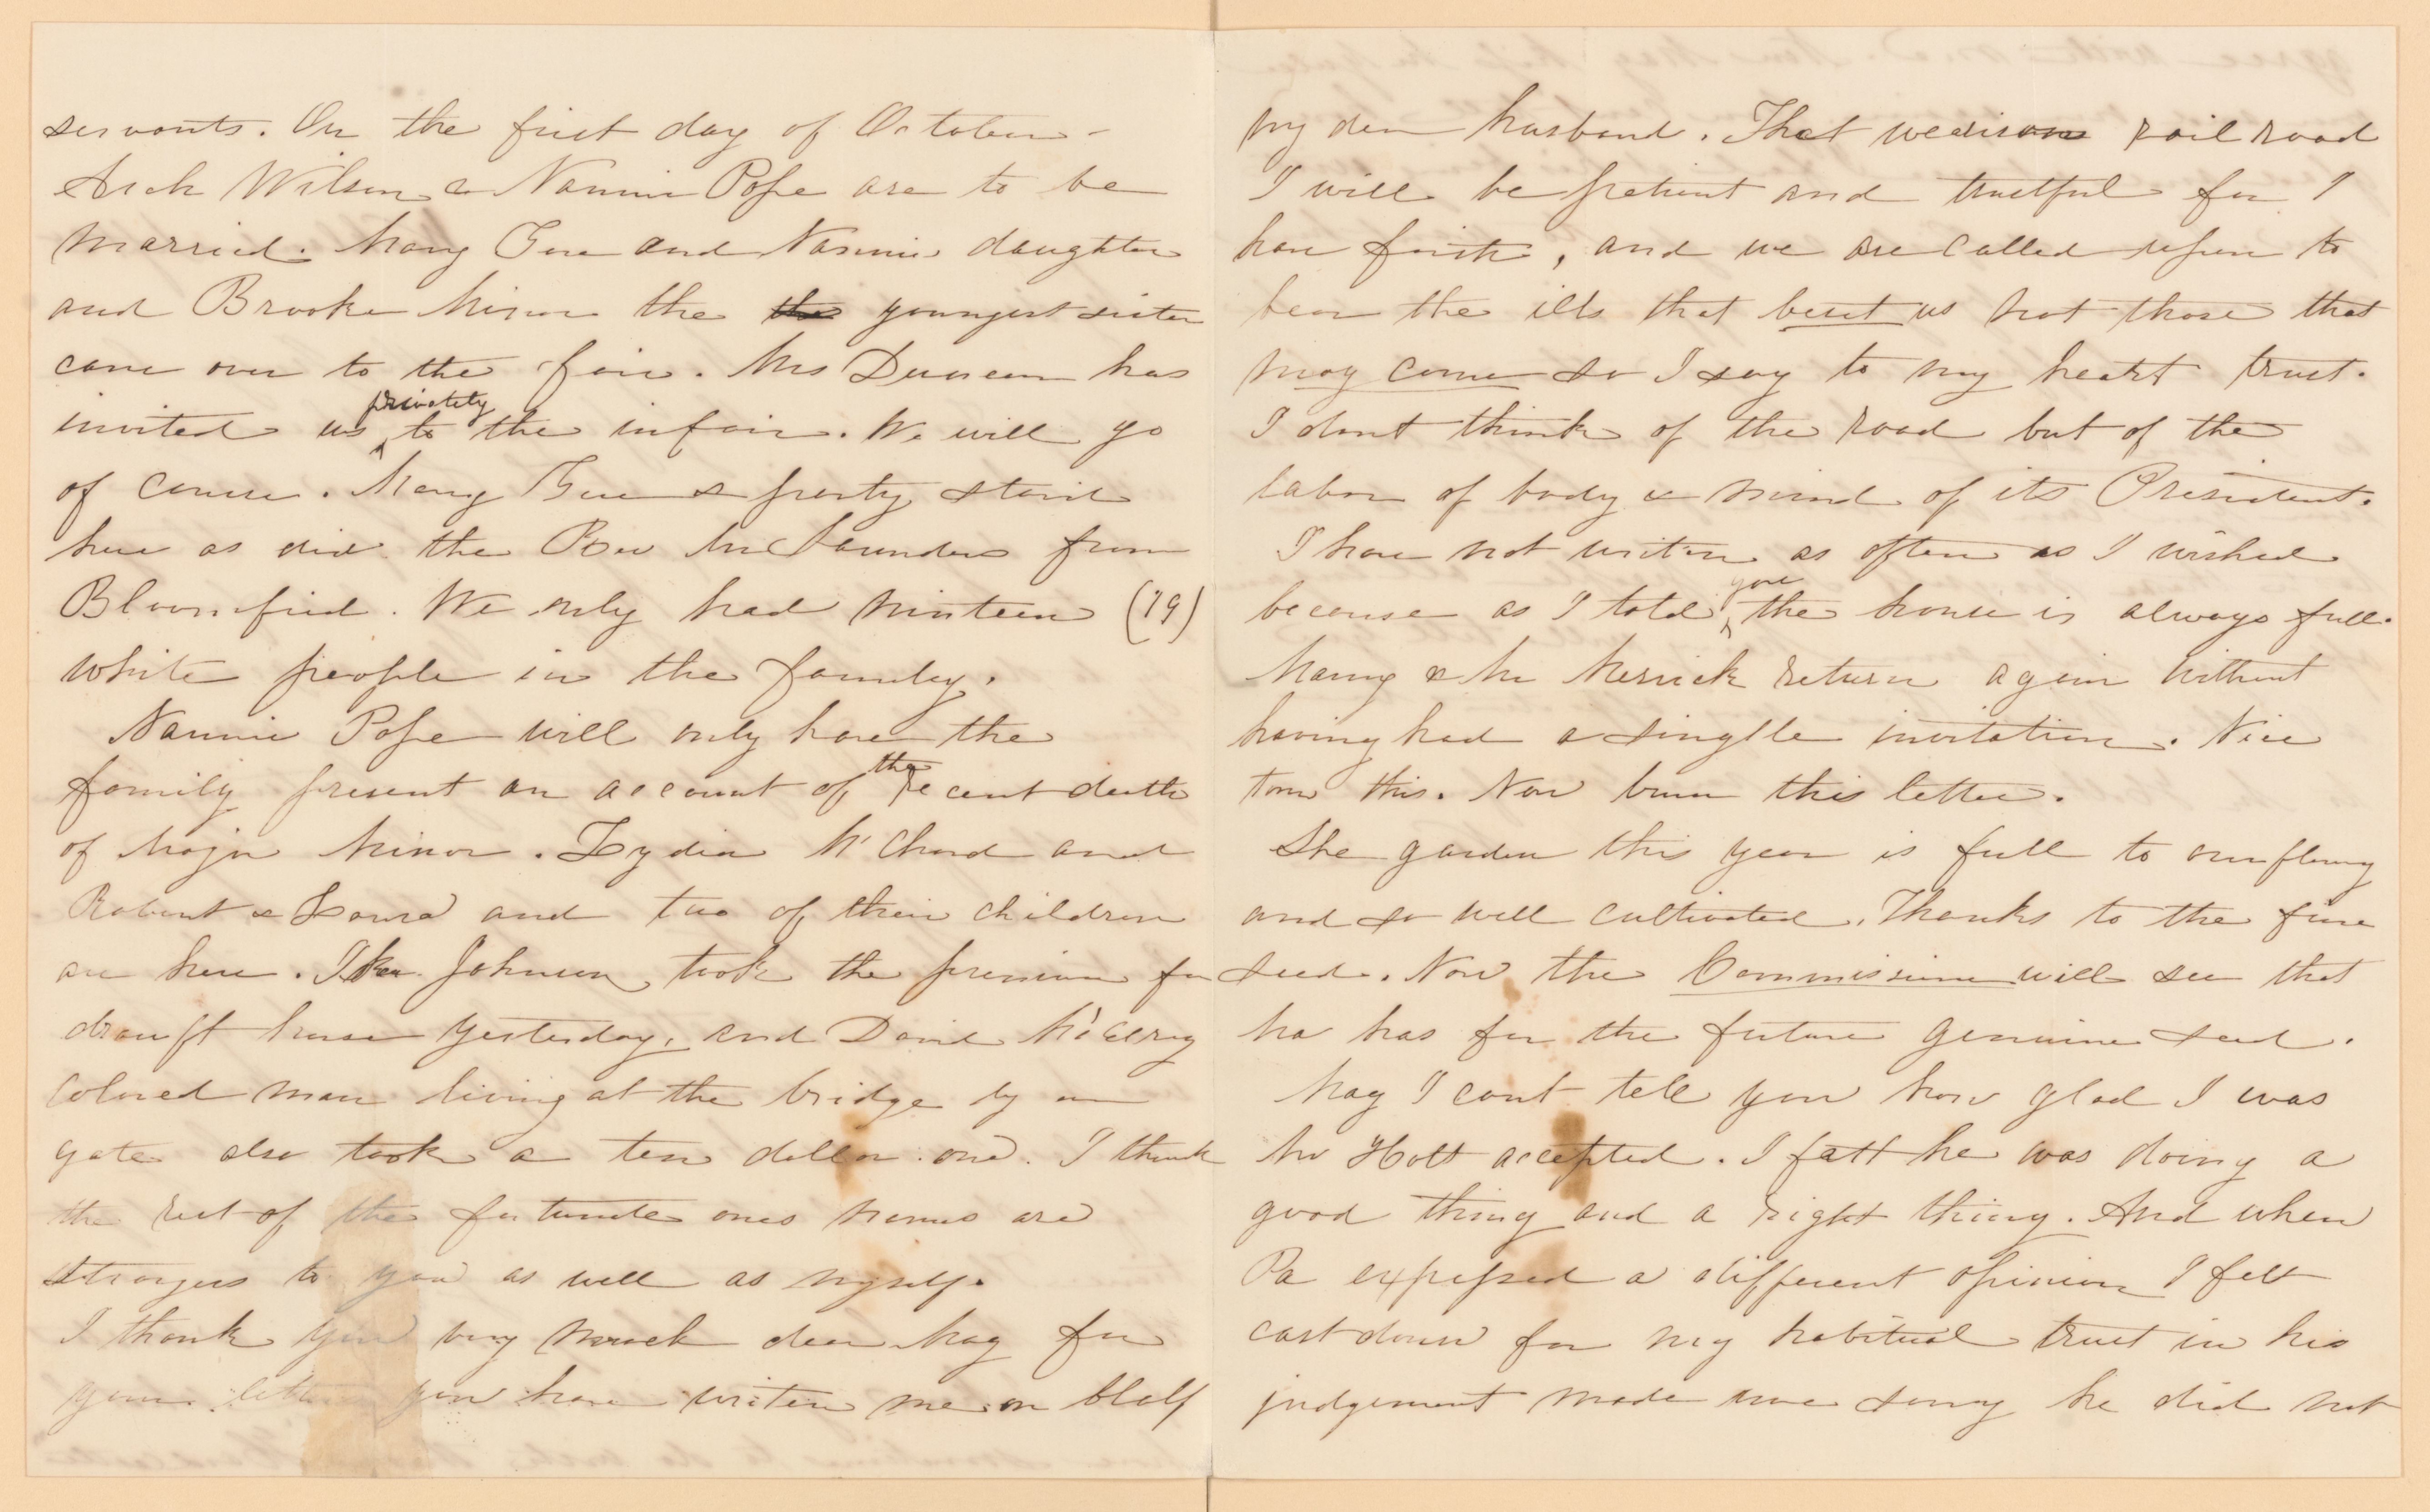 servants. On the first day of October -
Arch Wilson & Nannie Pope are to be
married. Mary Gue and Nannie daughter
and Brooke Minor the the youngest sister
came over to the fair. Mrs Duncan has
invited us privately to the infair. We will go
of course. Mary Gue & party staid
here as did the Rev Mr Saunders from
Bloomfield. We only had nineteen (19)
white people in the family.
Nannie Pope will only have the
family present on account of the recent death
of Major Minor. Lydia McChord and
Robert & Laura and two of their children
are here. Ike Johnson took the premium for
drauft horse yesterday, and David McElroy
colored man living at the bridge by our
gate also took a ten dollar one. I think
the rest of the fortunate ones names are
strangers to you as well as myself.
I thank you very much dear Mag for
your letters you have writen me on blalf
my dear husband. That wearisom rail road
I will be patient and trustful for I
have faith, and we are called upon to
bear the ills that beset us not those that
may come so I say to my heart trust.
I dont think of the road but of the
labor of body & mind of its President.
I have not writen as often as I wished
because as I told you the house is always full.
Mary & Mr Merrick return again without
having had a singlle invitation. Nice
tom this. Now burn this letter.
The garden this year is full to overflowing
and so well cultivated. Thanks to the fine
seed. Now the Commissioner will see that
he has for the future genuine seed.
Mag I cant tell you how glad I was
Mr Holt accepted. I fatt he was doing a
good thing and a right thing. And when
Pa expressed a different opinion I felt
cast down for my habitual trust in his
judgement made me sorry he did not